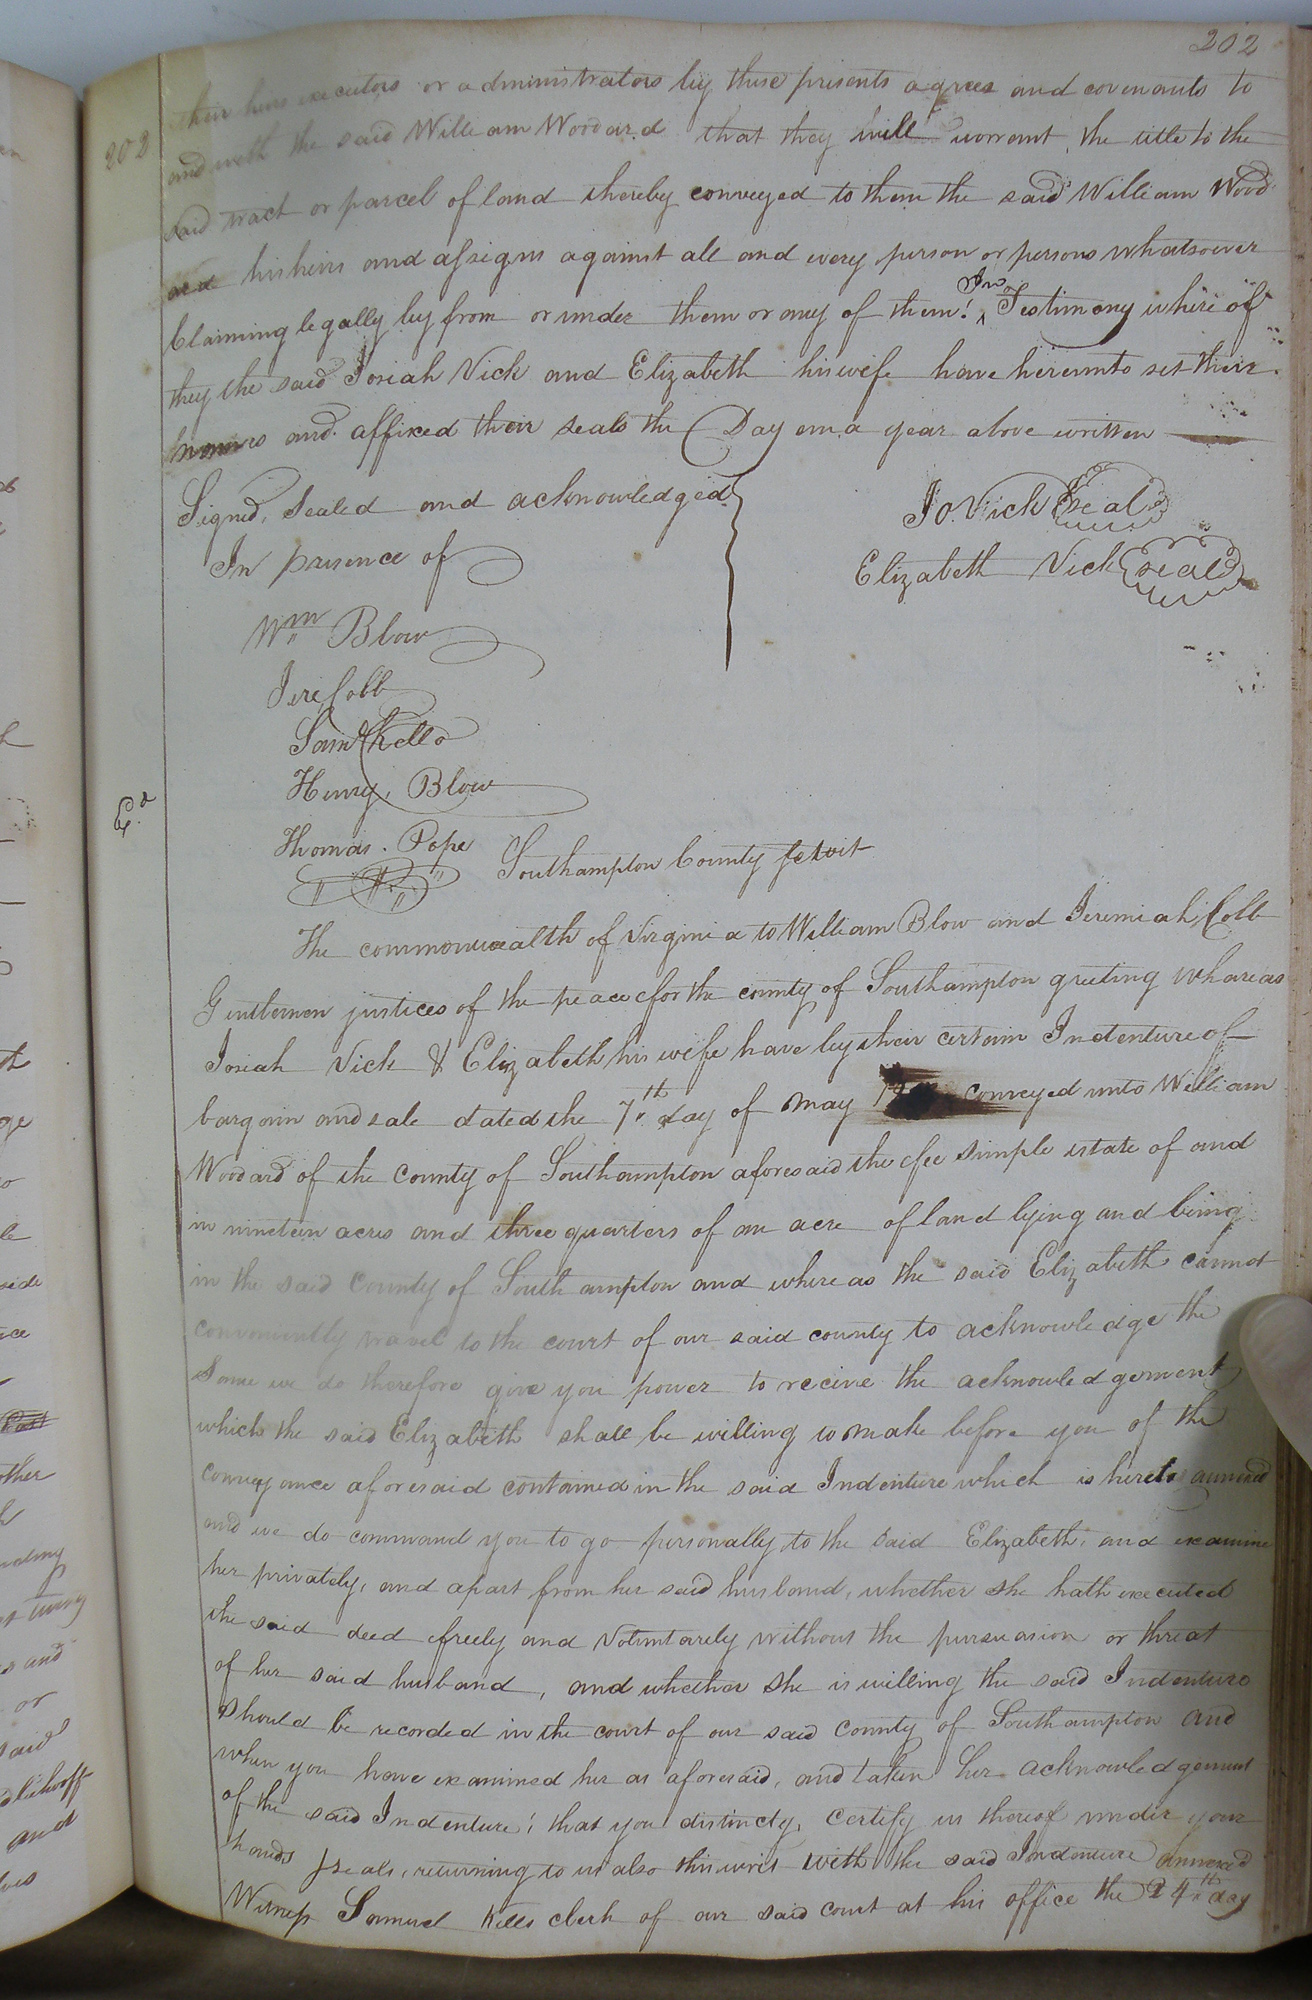 202
their heirs executors or administrators by these presents agrees and covenants to
202
and with the said William Woodard that they will warrant the title to the
said tract or parcel of land thereby conveyed to them the said William Wood
ard his heirs and assigns against all and every person or persons whatsoever
Claiming legally by from or under them or any of them! In Testimony where of
they the said Josiah Vick and Elizabeth his wife have hereunto set their
and affixed their seals the Day and year above written
Signed, Sealed and acknowledged
In presence of
Jo. Vick Seal
Elizabeth Vick seal
Wm Blow
Jere Cobb
Saml Kello
Henry Blow
Exd
Thomas. Pope
Southampton County Sctwit
The commonwealth of Virginia to William Blow and Jeremiah Cobb
Gentlemen justices of the peace for the county of Southampton greeting whareas
Josiah Vick & Elizabeth his wife have by their certain Indenture of
bargain and sale dated the 7th day of may conveyed unto William
Woodard of the county of Southampton aforesaid the fee simple estate of and
in nineteen acres and three quarters of an acre of land lying and being
in the said County of Southampton and where as the said Elizabeth cannot
conveniently travel to the court of our said county to acknowledge the
Same we do therefore give you power to receive the acknowledgement
which the said Elizabeth shall be willing to make before you of the
conveyance aforesaid contained in the said Indenture which is hereto annexed
and we do command you to go personally to the said Elizabeth, and examine
her privately, and apart from her said husband, whether she hath executed
the said deed freely and Voluntarely without the pursuasion or threat
of her said husband, and whether she is willing the said Indenture
should be recorded in the court of our said County of Southampton and
when you have examined her as aforesaid, and taken her acknowledgement
of the said Indenture! that you distincty, Certify us thereof under your
hands seals, returning to us also this writ with the said Indenture annexed
Witness Samuel Kello clerk of our said court at his office the 24th day